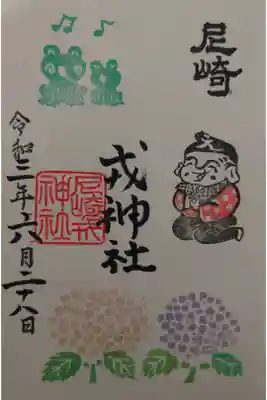 尼崎
戎神社
尼崎戎
神社
令和二年六月二十八日